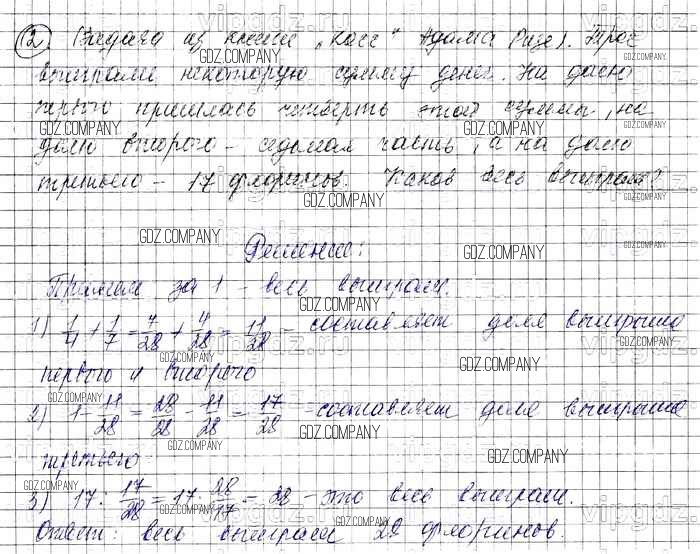 12 (Задача из книги „Косс“ Адама Ризе). Трое
выиграли некоторую сумму денег. На долю
первого пришлась четверть этой суммы, на
долю второго – седьмая часть, а на долю
третьего – 17 флоринов. Каков весь выигрыш?
Решение:
Примем за 1 – весь выигрыш.
1) 1/4 + 1/7 = 7/28 + 4/28 = 11/28 – составляет доля выигрыша
первого и второго
2) 1 - 11/28 = 28/28 - 11/28 = 17/28 – составляет доля выигрыша
третьего
3) 17 : 17/28 = 17 · 28/17 = 28 – это весь выигрыш.
Ответ: весь выигрыш 28 флоринов.
GDZ.COMPANY
vipgdz.ru